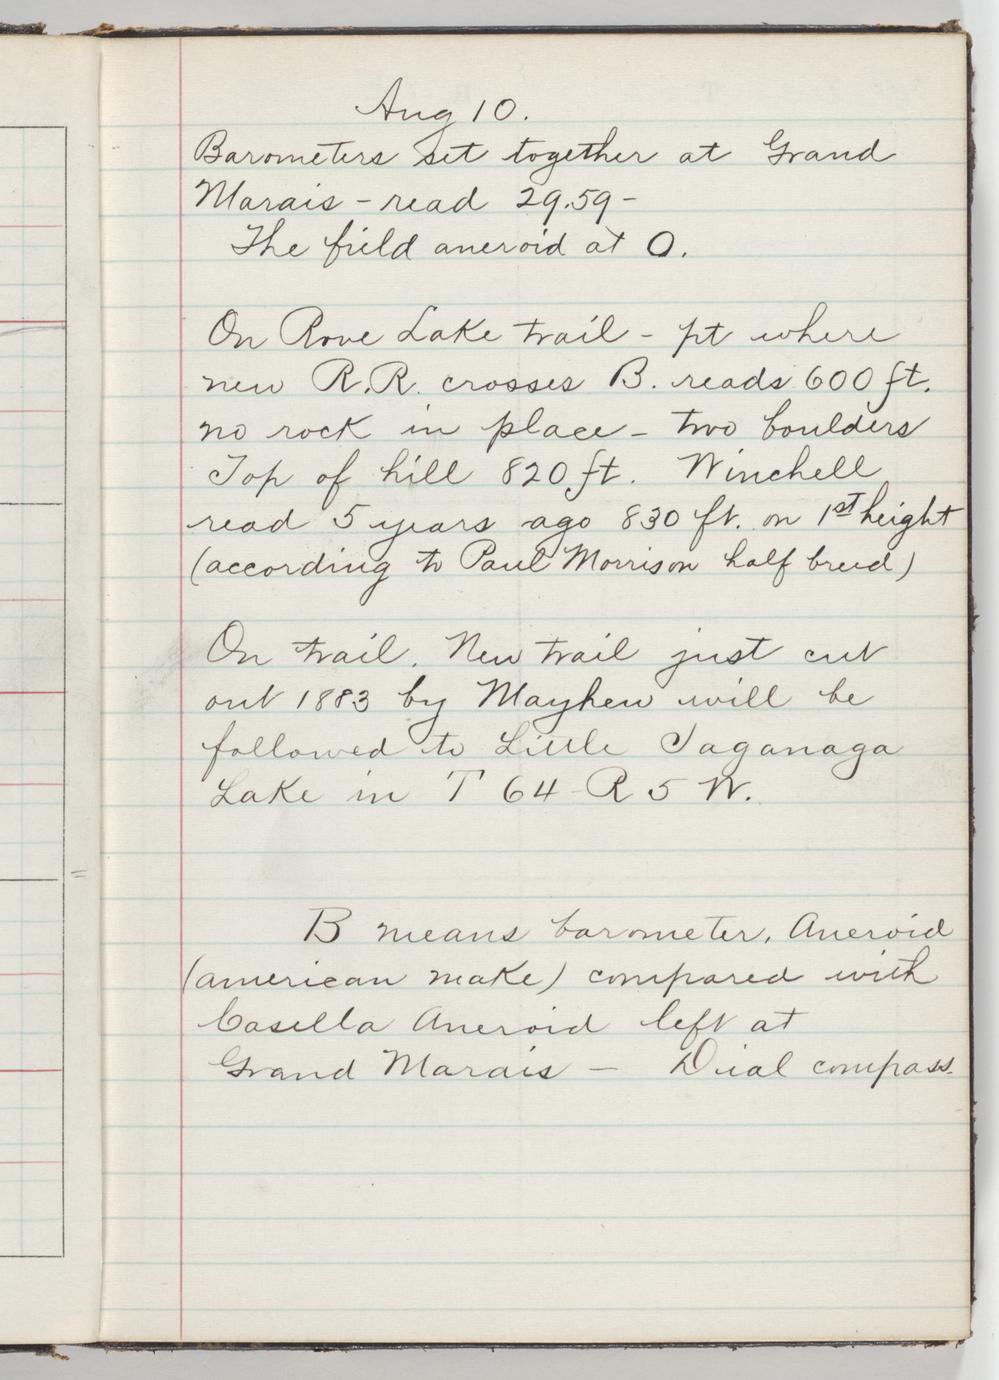 Aug 10.
Barometers set together at Grand
Marais - read 29.59 -
The field aneroid at 0.
On Rove Lake trail - pt where
new R.R. crosses B. reads 600 ft.
no rock in place - two boulders
Top of hill 820 ft. Winchell
read 5 years ago 830 ft. on 1st height
(according to Paul Morrison half breed)
On trail. New trail just cut
out 1883 by Mayhew will be
followed to Little Saganaga
Lake in T 64 R 5 W.
B means barometer, Aneroid
(american make) compared with
Casella Aneroid left at
Grand Marais - Dial compass.